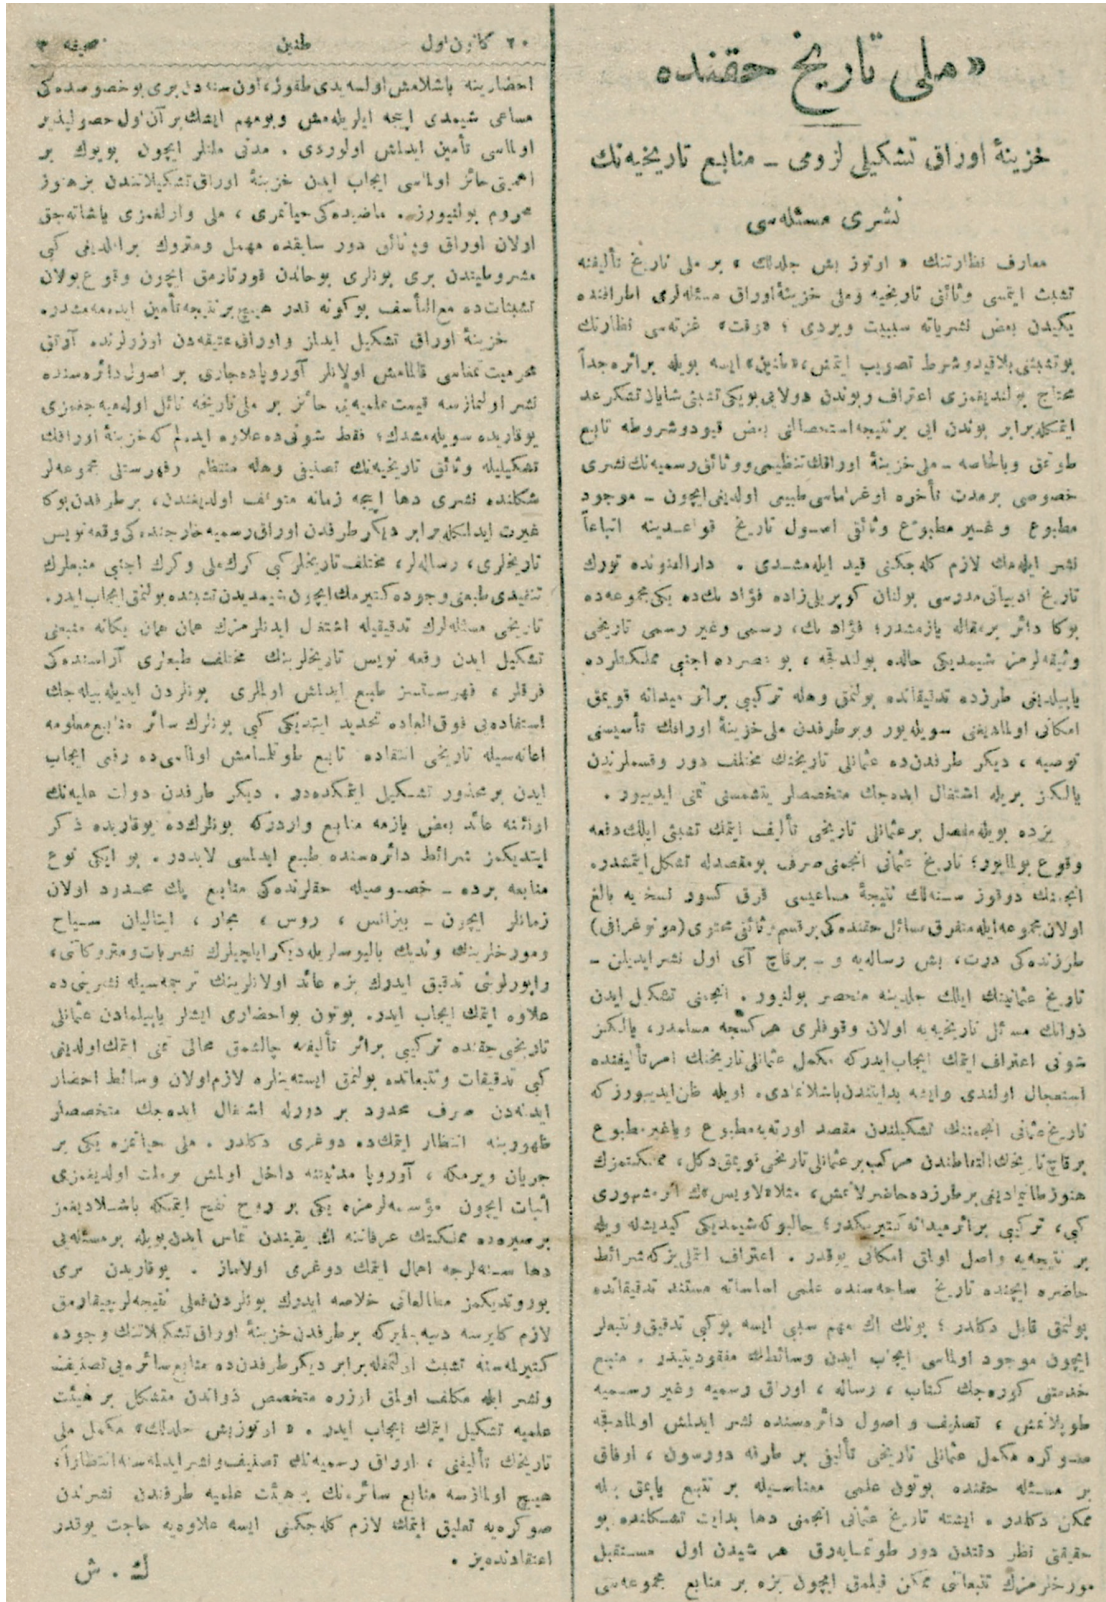 «ملی تاریخ حقنده
خزینهٔ اوراق تشكیلی لزومی ـ منابع تاریخیه‌نك
نشری مسئله‌سی
معارف نظارتنك « اوتوز بش جلدلك » بر ملی تاریخ تألیفنه
تشبث ایتمسی وثائق تاریخیه وملی خزینهٔ اوراق مسئله‌لری اطرافنده
یكیدن بعض نشریاته سببیت ویردی ؛ «وقت» غزته‌سی نظارتك
بوتشبثنی بلاقید وشرط تصویب ایتمش، «طنین» ایسه بویله براثره جداً
محتاج بولندیغمزی اعتراف وبوندن دولایی بویكی تشبثی شایان تشكر عد
ایتمكله برابر بوندن ایی برنتیجه استحصالنی بعض قیود وشروطه تابع
طوتمق وبالخاصه ـ ملی خزینهٔ اوراقك تنظیمی ووثائق رسمیه‌نك نشری
خصوصی برمدت تأخره اوغراماسی طبیعی اولدیغی ایچون ـ موجود
مطبوع و غیر مطبوع وثائق اصول تاریخ قواعدینه اتباعاً
نشر ایله‌مك لازم كله‌جكنی قید ایله‌مشدی . دارالفنونده تورك
تاریخ ادبیاتی مدرسی بولنان كوپریلی زاده فؤاد بك‌ده یكی مجموعه‌ده
بوكا دائر برمقاله یازمشدر؛ فؤاد بك، رسمی وغیر رسمی تاریخی
وثیقه‌لرمز شیمدیكی حالده بولندقجه ، بو عصرده اجنبی مملكتلرده
یاپیلدیغی طرزده تدقیقاتده بولنمق وهله تركیبی براثر میدانه قویمق
امكانی اولمادیغنی سویله‌یور وبرطرفدن ملی خزینهٔ اوراقك تأسیسنی
توصیه ، دیكر طرفدن‌ده عثمانلی تاریخنك مختلف دور وقسملرندن
یالكز بریله اشتغال ایده‌جك متخصصلر یتشمسنی تمنی ایدییور .
بزده بویله مفصل بر عثمانلی تاریخی تألیف ایتمك تشبثی ایلك دفعه
وقوع بولمایور؛ تاریخ عثمانی انجمنی صرف بومقصدله تشكل ایتمشدر.
انجمنك دوقوز سنه‌لك نتیجهٔ مساعیسی قرق كسور نسخه‌یه بالغ
اولان مجموعه ایله متفرق مسائل حقنده‌كی برقسم وثائقی محتوی (مونوغرافی)
طرزنده‌كی درت، بش رساله‌یه و ـ برقاچ آی اول نشر ایدیلن ـ
تاریخ عثمانینك ایلك جلدینه منحصر بولنیور . انجمنی تشكیل ایدن
ذواتك مسائل تاریخیه‌یه اولان وقوفلری هركسجه مسلمدر، یالكز
شونی اعتراف ایتمك ایجاب ایدركه مكمل عثمانلی تاریخنك امر تألیفنده
استعجال اولندی وایشه بدایتندن باشلانمادی. اویله ظن ایدییورزكه
تاریخ عثمانی انجمننك تشكیلندن مقصد اورته‌یه مطبوع ویاغیر مطبوع
برقاچ تاریخك التقاطندن مركب بر عثمانلی تاریخی قویمق دكل، مملكتمزك
هنوز طانیمادیغی برطرزده حاضرلانمش، مثلا «لاویس»ك اثر مشهوری
كبی، تركیبی براثر میدانه كتیرمكدر؛ حالبوكه شیمدیكی كیدیشله ویله
بر نتیجه‌یه واصل اولمق امكانی یوقدر . اعتراف ایتملی‌یزكه شرائط
حاضره ایچنده تاریخ ساحه‌سنده علمی اساساته مستند تدقیقاتده
بولنمق قابل دكلدر ؛ بونك اك مهم سببی ایسه بوكبی تدقیق وتتبعلر
ایچون موجود اولماسی ایجاب ایدن وسائطك مفقودیتیدر . منبع
خدمتنی كوره‌جك كتاب ، رساله ، اوراق رسمیه وغیر رسمیه
طوپلانمش ، تصنیف و اصول دائره‌سنده نشر ایدلمش اولمادقجه
صوكره مكمل عثمانلی تاریخی تألیفی بر طرفه دورسون ، اوفاق
بر مسئله حقنده بوتون علمی معناسیله بر تتبع یاپمق بیله
ممكن دكلدر . ایشته تاریخ عثمانی انجمنی دها بدایت تشكلنده بو
حقیقتی نظر دقتدن دور طوتمایه‌رق هر شیدن اول مستقبل
مورخلرمزك تتبعاتنی ممكن قیلمق ایچون بزه بر منابع مجموعه‌سی
٢٠ كانون اول
طنین
صحیفه ٣
احضارینه باشلامش اولسه‌یدی طقوز، اون سنه‌دن بری بو خصوصده‌كی
مساعی شیمدی اپیجه ایلریله‌مش وبومهم ایشك بر آن اول حصولپذیر
اولماسی تأمین ایدلمش اولوردی . مدنی ملتلر ایچون بویوك بر
اهمیتی حائز اولماسی ایجاب ایدن خزینهٔ اوراق تشكیلاتندن بز هنوز
محروم بولنیورز. ماضیده‌كی حیاتمزی ، ملی وارلغمزی یاشاته‌جق
اولان اوراق و وثائق دور سابقده مهمل ومتروك براقلدیغی كبی
مشروطیتدن بری بونلری بوحالدن قورتارمق ایچون وقوع بولان
تشبثات‌ده مع‌التأسف بوكونه قدر هیچ برنتیجه تأمین ایده‌مه‌مشدر.
خزینهٔ اوراق تشكیل ایدلمز واوراق عتیقه‌دن اوزرلرنده آرتق
محرمیت تمغاسی قالمامش اولانلر آوروپاده جاری بر اصول دائره‌سنده
نشر اولنمازسه قیمت علمیه‌یی حائز بر ملی تاریخه نائل اوله‌میه‌جغمزی
یوقاریده سویله‌مشدك؛ فقط شونی‌ده علاوه ایده‌لم كه خزینهٔ اوراقك
تشكیلیله وثائق تاریخیه‌نك تصنیفی وهله منتظم وفهرستلی مجموعه‌لر
شكلنده نشری دها اپیجه زمانه متوقف اولدیغندن، برطرفدن بوكا
غیرت ایدلمكله برابر دیكر طرفدن اوراق رسمیه خارجنده‌كی وقعه‌نویس
تاریخلری، رساله‌لر، مختلف تاریخلر كبی كرك ملی وكرك اجنبی منبعلرك
تنقیدی طبعنی وجوده كتیرمك ایچون شیمدیدن تشبثده بولنمق ایجاب ایدر.
تاریخی مسئله‌لرك تدقیقیله اشتغال ایدنلرمزك همان همان یكانه منبعنی
تشكیل ایدن وقعه نویس تاریخلرینك مختلف طبعلری آراسنده‌كی
فرقلر ، فهرستسز طبع ایدلمش اولملری بونلردن ایدیله‌بیله‌جك
استفاده‌یی فوق‌العاده تحدید ایتدیكی كبی بونلرك سائر منابع معلومه
اعانه‌سیله تاریخی انتقاده تابع طوتلمامش اولماسی‌ده رفعی ایجاب
ایدن بر محذور تشكیل ایتمكده‌در . دیكر طرفدن دولت علیه‌نك
ازمنه عائد بعض یازمه منابع واردركه بونلرك‌ده یوقاریده ذكر
ایتدیكمز شرائط دائره‌سنده طبع ایدلمسی لابددر . بو ایكی نوع
منابعه برده ـ خصوصیله حقلرنده‌كی منابع پك محدود اولان
زمانلر ایچون ـ بیزانس ، روس ، مجار ، ایتالیان سیاح
ومورخلرینك وندیك بالیوسلریله دیكر ایلچیلرك نشریات ومتروكاتی،
راپورلرینی تدقیق ایدرك بزه عائد اولانلرینك ترجمه‌سیله نشرینی‌ده
علاوه ایتمك ایجاب ایدر. بوتون بو احضاری ایشلر یاپیلمادن عثمانلی
تاریخی حقنده تركیبی براثر تألیفنه چالشمق محالی تمنی ایتمك اولدیغی
كبی تدقیقات وتتبعاتده بولنمق ایسته‌ینلره لازم اولان وسائط احضار
ایدلمه‌دن صرف محدود بر دورله اشتغال ایده‌جك متخصصلر
ظهورینه انتظار ایتمك‌ده دوغری دكلدر . ملی حیاتمزه یكی بر
جریان ویرمكه ، آوروپا مدنیتنه داخل اولمش برملت اولدیغمزی
اثبات ایچون مؤسسه‌لرمزه یكی بر روح نفخ ایتمكه باشلادیغمز
برصیره‌ده مملكتك عرفاننه اك یقیندن تماس ایدن بویله برمسئله‌یی
دها سنه‌لرجه اهمال ایتمك دوغری اولاماز . یوقاریدن بری
یوروتدیكمز مطالعاتی خلاصه ایدرك بونلردن فعلی نتیجه‌لر چیقارمق
لازم كلیرسه دییه‌بیلیرزكه برطرفدن خزینهٔ اوراق تشكیلاتنك وجوده
كتیرلمه‌سنه تشبث اولنمقله برابر دیكر طرفدن‌ده منابع سائره‌یی تصنیف
ونشر ایله مكلف اولمق اوزره متخصص ذواتدن متشكل بر هیئت
علمیه تشكیل ایتمك ایجاب ایدر . « اوتوزبش جلدلك» مكمل ملی
تاریخك تألیفنی ، اوراق رسمیه‌نك تصنیف ونشر ایدلمه‌سنه انتظاراً،
هیچ اولمازسه منابع سائره‌نك برهیئت علمیه طرفندن نشرندن
صوكره‌یه تعلیق ایتمك لازم كله‌جكنی ایسه علاوه‌یه حاجت یوقدر
اعتقادنده‌یز .
ك . ش